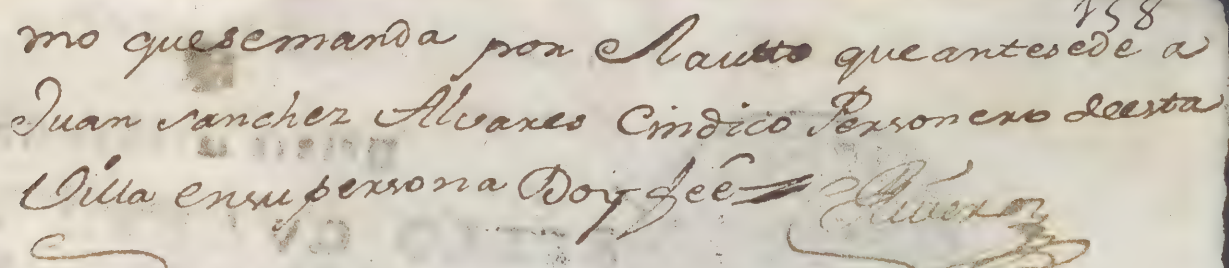 158
mo quesemanda por elautto que antesede a
Juan sanchez Alvares Cindico Personero deesta
Villa ensupersona Doy feê
Riveroz